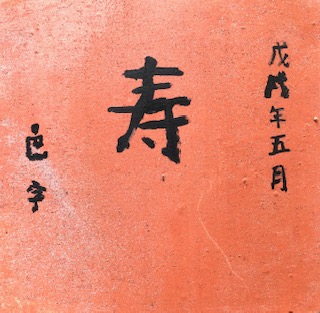 戊戌年五月
寿
色字